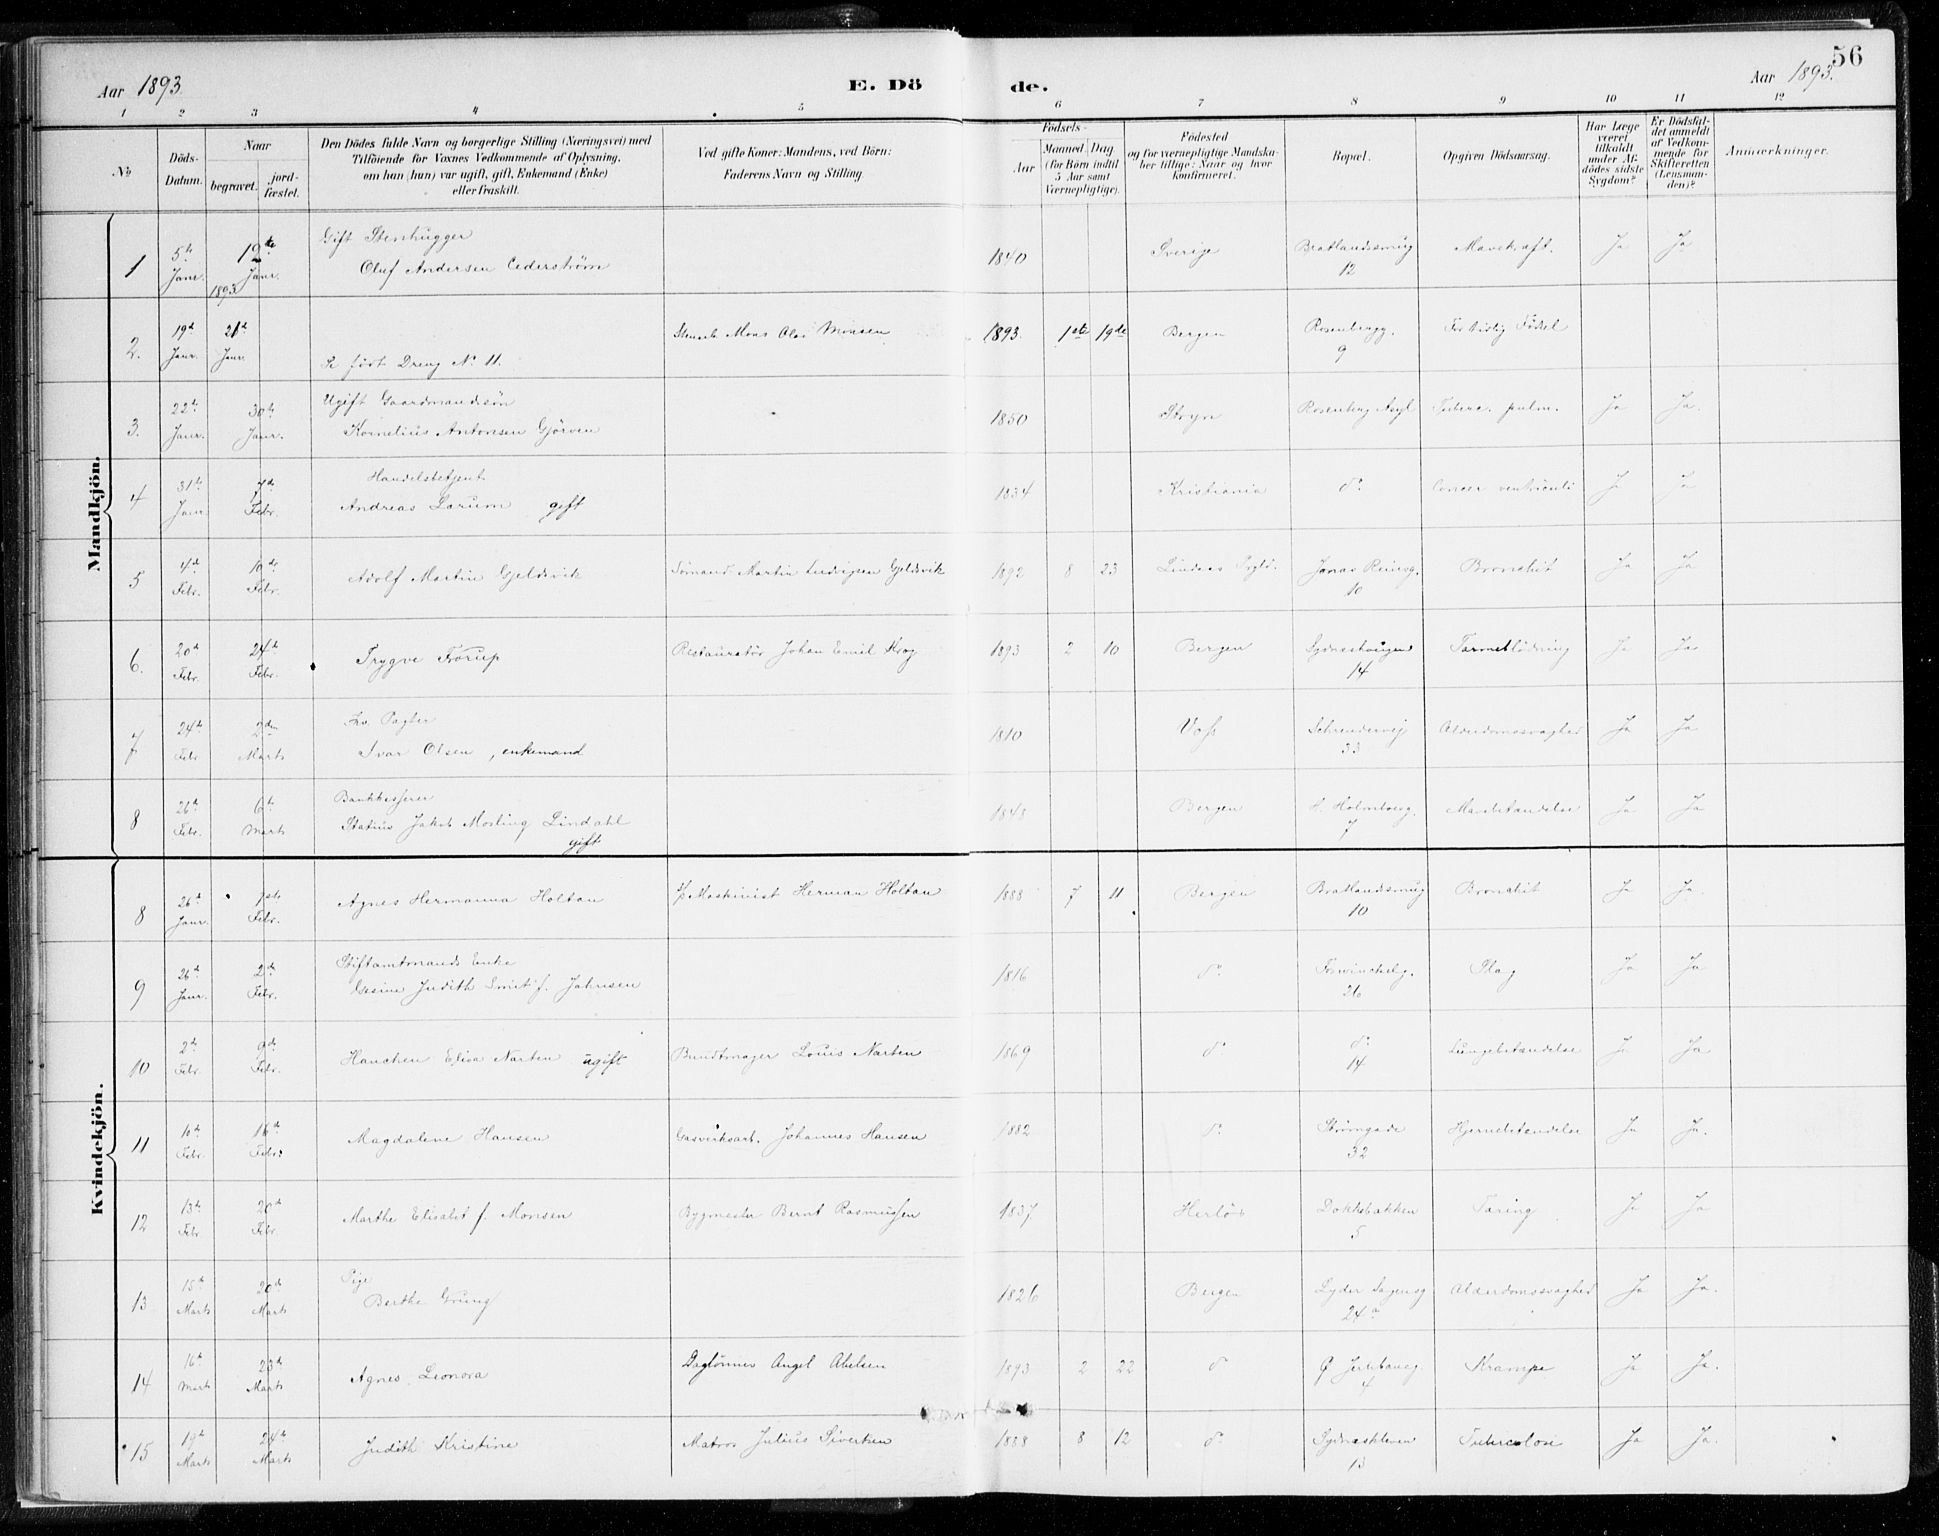 Aar 1893. E. Dö de. Aar 1893. 56
1 2 3 4 5 6 7 8 9 10 11 12
No
Döds-Datum.
Naar
begravet.
jordfæstet.
Den Dödes fulde Navn og borgerlige Stilling (Næringsvei) med
Tilföiende for Voxnes Vedkommende af Oplysning,
om han (hun) var ugift, gift, Enkemand (Enke)
eller fraskilt.
Ved gifte Koner: Mandens, ved Börn:
Faderens Navn og Stilling.
Födsels-
Aar
Maaned. Dag.
(for Börn indtil
5 Aar samt
Værnepligtige).
Födested
og for værnepligtige Mandskaber
tillige: Naar og hvor
Konfirmeret.
Bopæl.
Opgiven Dödsaarsag.
Har Læge
været
tilkaldt
under Afdödes
sidste
Sygdom?
Er Dödsfaldet
anmeldt
af Vedkommende
for
Skifteretten
(Lensmanden)?
Anmærkninger.
Mandkjön.
1 5te Janr. 12te Janr. 1893 Gift Stenhugger
Oluf Andersen Cederström 1840 Sverige Bratlandssmug 12 Ja Ja
2. 19d Janr. 21d Janr. Se föst Dreng No 11. Mons Olai Monsen 1893. 1ste 19de Bergen Rosenbergg. 9 For tidlig Födsel
3. 22de Janr. 30te Janr. Ugift Gaardmandssön
Kornelius Antonsen Gjörven 1850 Stryn Rosenberg Asyl Tuberc. pulm. Ja Ja.
4 31te Janr. 7de Febr. Handelsbetjent
Andreas Larum gift 1834 Kristiania do Cancer ventriculi Ja Ja
5 4de Febr. 10de Febr. Adolf Martin Gjeldsvik Sömand Martin Ludvigsen Gjeldsvik 1892 8 23 Lindaas Prgld. Jonas Reinsg. 10 Bronchit Ja Ja
6. 20d Febr. 24de Febr. Trygve Frorup Restauratör Johan Emil Krog 1893 2 10 Bergen Sydneshougen 14 Tarmeblödning Ja Ja
7 24de Febr 2den Marts Fv. Pagter
Ivar Olsen, enkemand 1810 Voss 33 Alderdomssvaghed Ja Ja
8 26de Febr. 6te Marts Bankkasserer
Statius Jakob Mosling Lindahl
gift 1843 Bergen H. Holmboesg. 7 Ja Ja
Kvindekjön.
8 26de Janr. 1ste Febr. Agnes Hermanna Holtan Maskinist Herman Holtan 1888 7 11 Bergen Bratlandssmug 10 Bronchit Ja Ja.
9 26de Janr. 2de Febr. Stiftamtmands Enke
Gesine Judith Smit f. Jahnsen 1816 do Fosswinckelsg. 26 Slag Ja Ja
10 2de Febr. 9de Febr. Hanchen Elisa Narten ugift Bundtmager Louis Narten 1869 do do 14 Lungebetændelse Ja Ja
11 10de Febr. 16de Febr. Magdalene Hansen Gasverksarb. Johannes Hansen 1882 do Strömgade 32 Hjernebetændelse Ja Ja.
12 13te Febr. 20de Febr. Marthe Elisabet f. Monsen Bygmester Bernt Rasmussen 1837 Herlö Dokkebakken 5 Taring Ja Ja
13 15de Marts 20de Marts Pige
Berthe Grung 1826 Bergen Lyder Sagensg 24a Alderdomssvaghed Ja Ja.
14 16de Marts 23de Marts Agnes Leonora Daglönner Angel Abelsen 1893 2 22 do 4 Krampe Ja Ja.
15 19de Marts 24de Marts Judith Kristine Matros Julius Sivertsen 1888 8 12 do Sydneskleven 13 Tuberculose Ja Ja.